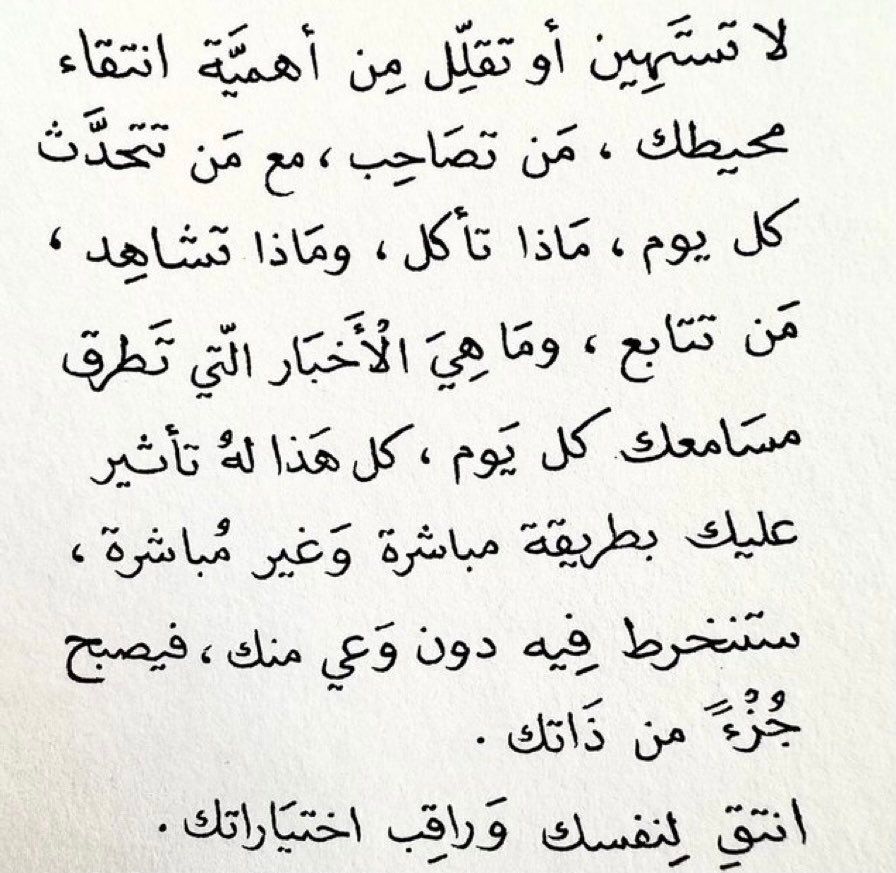 لا تستَهِين أو تقلِّل مِن أهميَّة انتقاء
محيطك ، مَن تصَاحِب ، مع مَن تتحدَّث
كل يوم ، مَاذا تأكل ، ومَاذا تشاهِد ،
مَن تتابع ، ومَا هِيَ الْأَخبَار الّتي تَطرق
مسَامعك كل يَوم ، كل هَذا لهُ تأثير
عليك بطريقة مباشرة وَغير مُباشرة ،
ستنخرط فِيه دون وَعي منك ، فيصبح
جُزْءً من ذَاتك .
انتقِ لِنفسك وَراقِب اختيَاراتك .